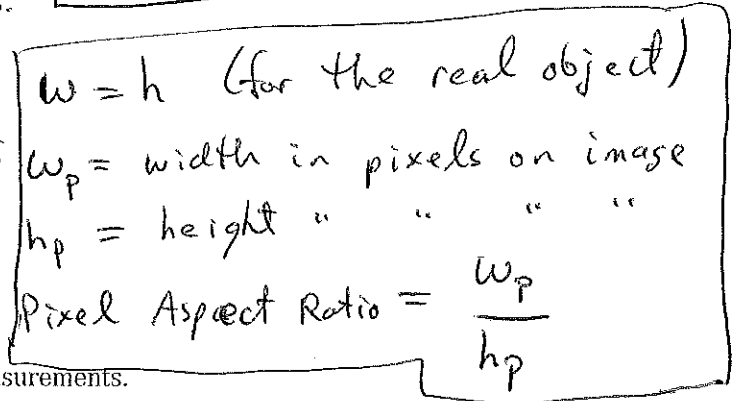 w = h (for the real object)
wp = width in pixels on image
hp = height " " " "
Pixel Aspect Ratio = wp / hp
surements.